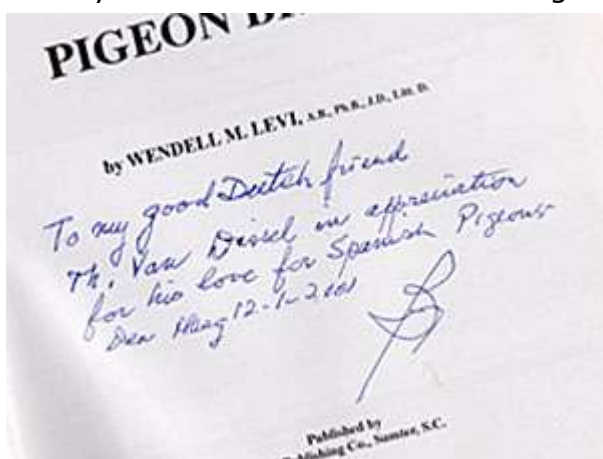 PIGEON
by WENDELL M. LEVI, A.B., Ph.B., J.D., Litt. D.
To my good Dutch friend
Th. Van Dissel in appreciation
for his love for Spanish Pigeons
Den Haag 12-1-2001
Published by
Co., Sumter, S.C.